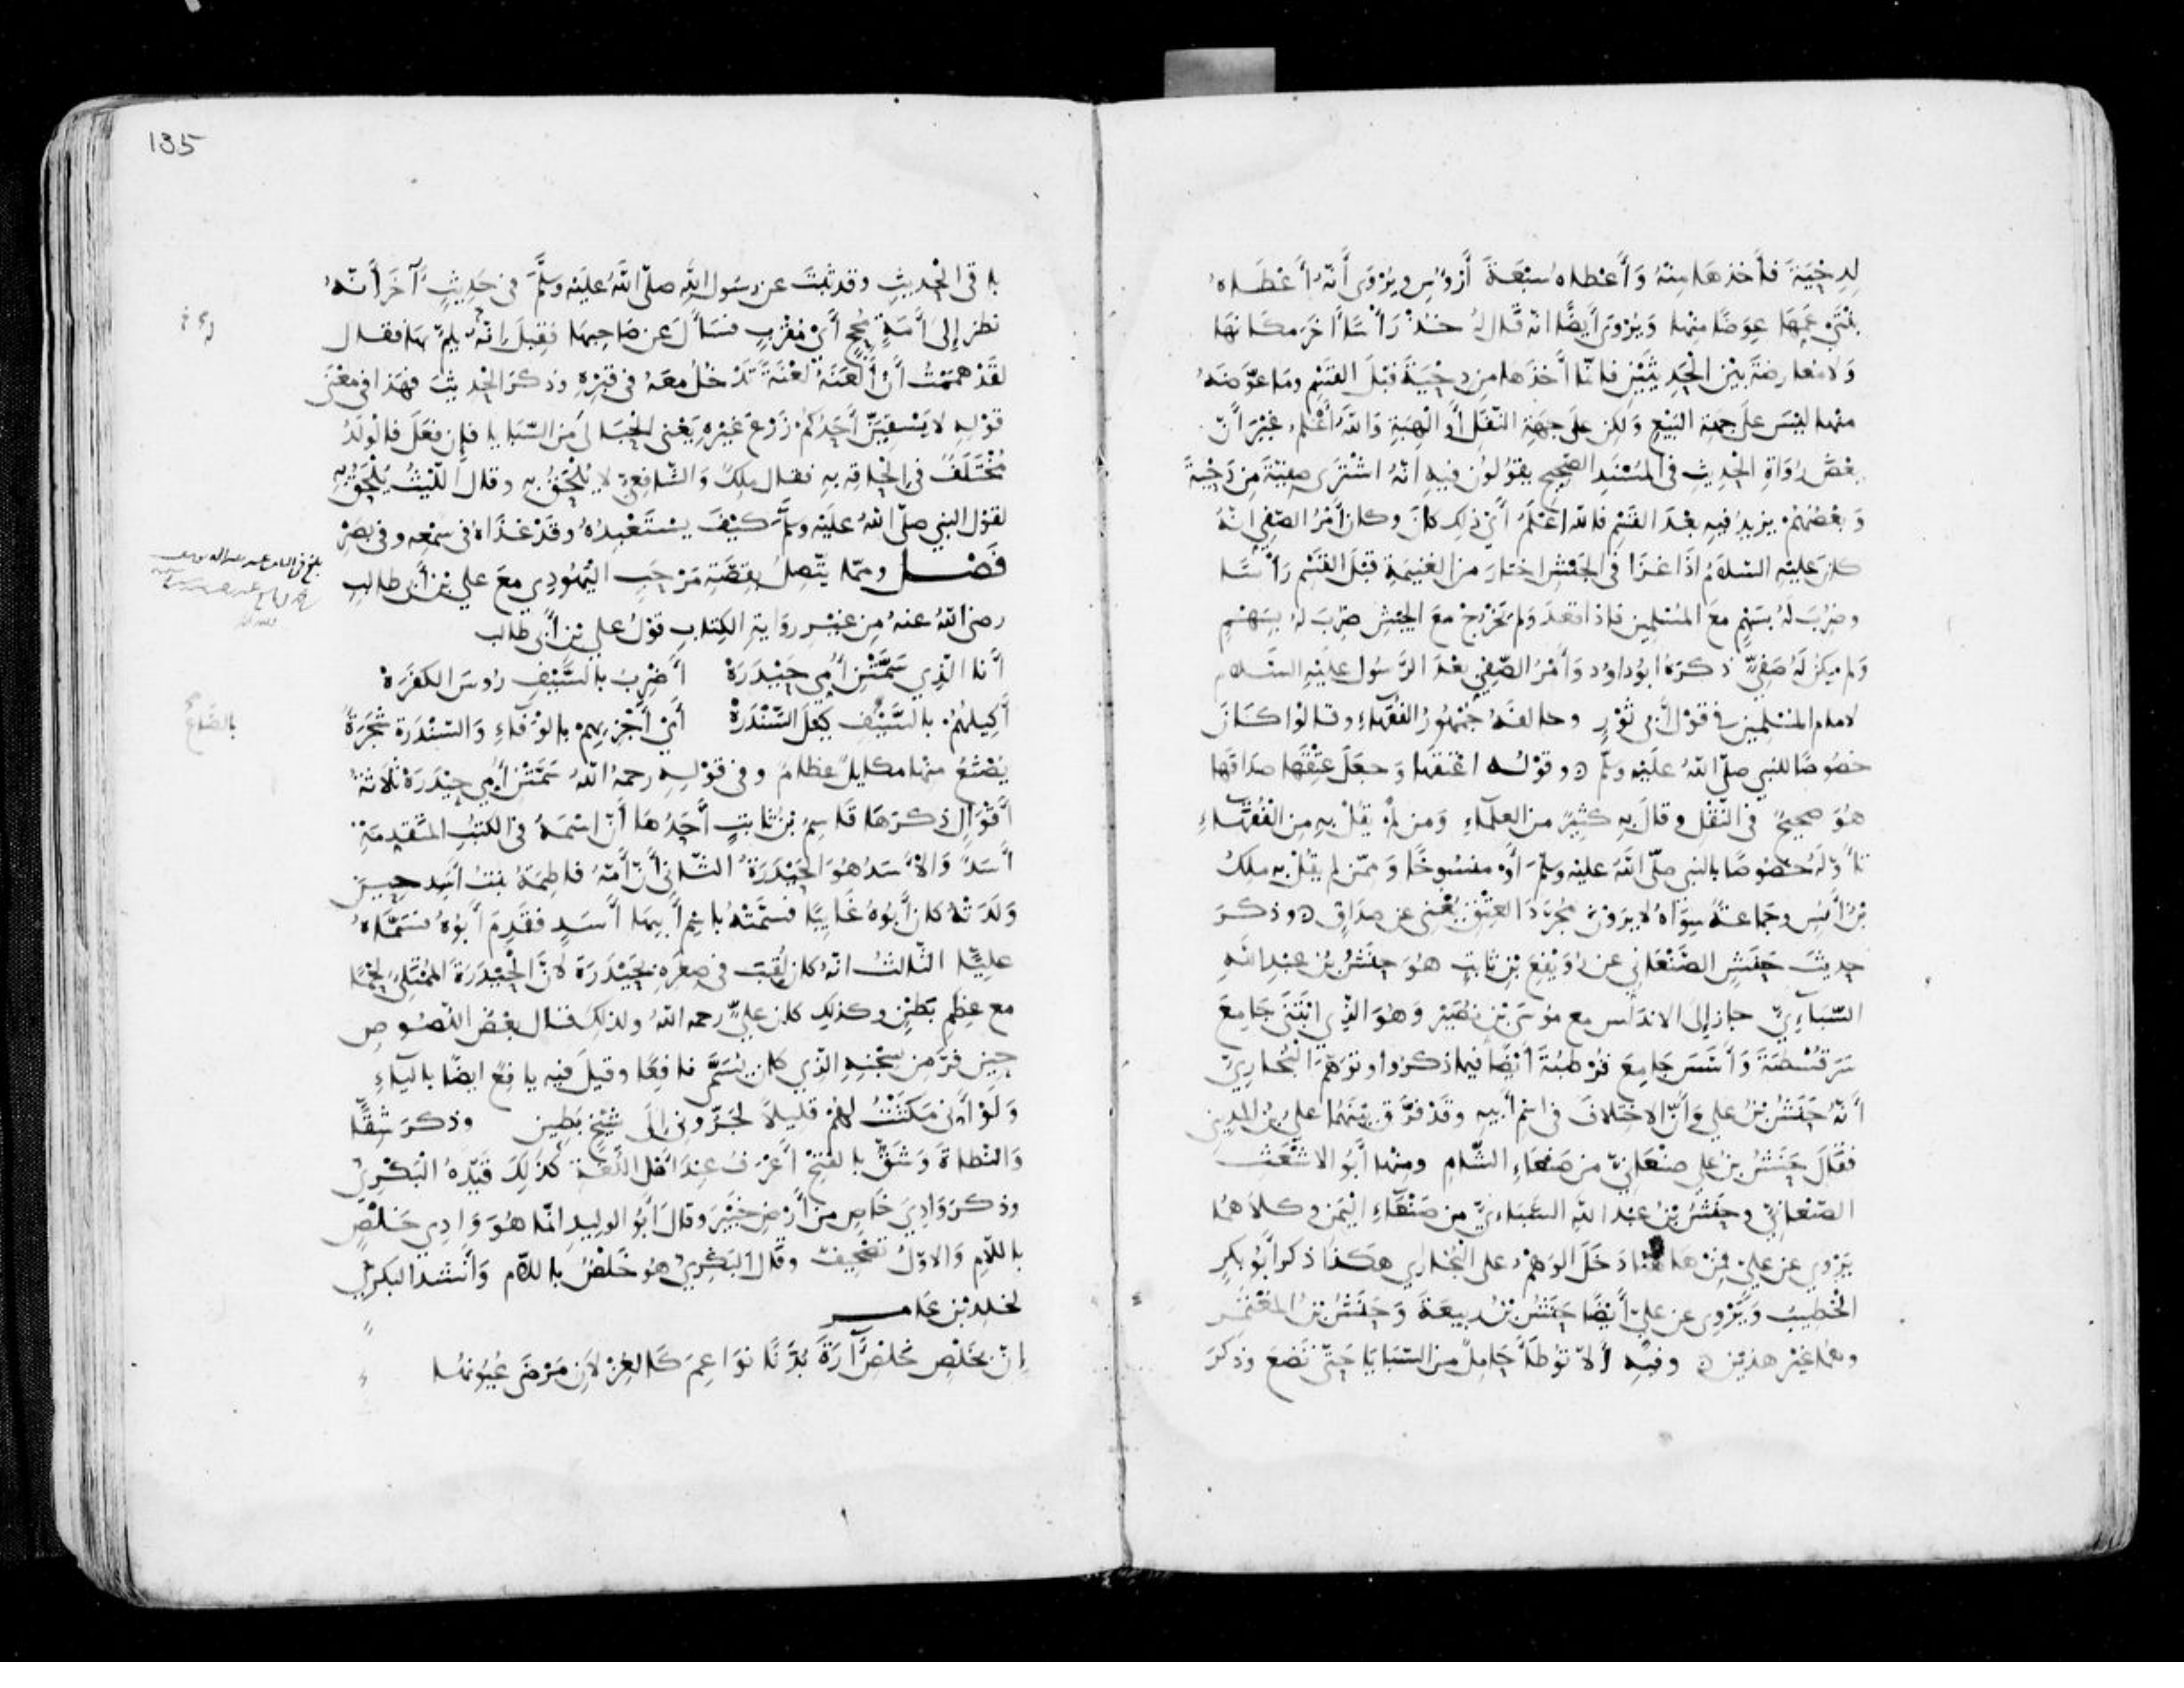 لِدِحْيَةَ فأَخذهَا مِنْهُ وَأَعْطاه سَبْعَةَ أَرْؤُسٍ ويُرْوَى أَنّهُ أَعْطَاهُ
بِنْتَيْ عَمِّهَا عِوَضًا مِنْها وَيُرْوَى أَيضًا انّه قَال لهُ خُذْ رَأْسًا آخَرَ مكَانهَا
وَلا مُعارضَةَ بيْن الْحَدِيثَيْنِ فانّما أَخَذَها من دِحْيَةَ قبْلَ القَسْمِ وما عوّضَهُ
منها ليْسَ علَى جهَةِ البَيْعِ وَلكِن علَى جِهَةِ النّفَلِ أَو الْهِبَةِ وَاللّهُ أَعْلمُ غيْرَ أنّ
بعْضَ رُوَاةِ الحَدِيثِ في المُسْنَدِ الصّحِيحِ يقُولُون فيهِ انّهُ اشْتَرَى صفِيّةَ مِن دِحْيَةَ
وَبعْضُهُمْ يزِيدُ فيهِ بعْدَ القَسْمِ فاللّه اعْلمُ أَيّ ذلِك كانَ وكان أَمْرُ الصّفِيّ انّهُ
كانَ عليْهِ السّلامُ اذَا غَزَا في الجَيْشِ اختارَ من الغنِيمَةِ قبْلَ القَسْمِ رَأْسًا
وضُرِبَ لهُ بسَهْمٍ معَ المُسْلِمِين فإذا قعَدَ وَلم يَخْرُجْ معَ الجَيْشِ ضُرِبَ لهُ بسَهْمٍ
وَلم يكنْ لَهُ صَفِيٌّ ذكرَهُ ابُو داوُد وَأَمْرُ الصّفِيّ بعْدَ الرَّسُول عليْهِ السّلام
لامام المُسْلِمِين في قوْلِ أَبي ثوْرٍ وخالفَهُ جُمْهُورُ الفُقهَاءِ وقالوا كَانَ
خصُوصًا للنبي صلّى اللّهُ عليْهِ وسلّم ه وقوْلُه اعْتقَهَا وَجعَلَ عِتْقَهَا صدَاقَهَا
هُوَ صحِيحٌ في النّقْلِ وقالَ بهِ كثِيرٌ من العلَمَاءِ وَمن لمْ يقُلْ بهِ مِن الفُقهَاءِ
تأَوّلَهُ خصُوصًا بالنبي صلّى اللّهُ عليْهِ وسلّم أَوْ منسُوخًا وَممّن لم يقُلْ به ملِكُ
بْنُ أَنسٍ وجَماعةٌ سِوَاهُ لا يرَوْن مُجَرَّدَ العِتْقِ يُغْنِي عن صدَاقٍ ه وذكَرَ
حدِيثَ حنَشٍ الصّنْعَاني عن رُوَيْفِعِ بْنِ ثابِتٍ هُوَ حنَشُ بْنُ عبْدِ اللّهِ
السّبَاءِيّ جاز إلى الاندلُس مع مُوسَى بْنِ نُصَيْرٍ وَهُوَ الّذِي ابْتنَى جَامِعَ
سَرَقُسْطَةَ وَأَسّسَ جَامِعَ قُرْطُبَةَ أَيْضًا فيما ذكرُوا وتوَهّمَ البُخارِيّ
أَنّهُ حنَشُ بْنُ علي وَأَنّ الاختِلافَ في اسْمِ أَبيهِ وقَدْ فرَّق بيْنَهُما علي بْنُ المدِينِي
فقالَ حنَشُ بنُ علي صنْعَانيٌّ من صَنعَاءِ الشّامِ ومنها أَبُو الاشْعَثِ
الصّنْعانيّ وحنَشُ بْنُ عبْد اللّهِ السّبَاءِيّ من صَنْعَاءِ اليَمَن وكلاَهُما
يَرْوِي عن عليّ فمِنْ هَاهُنَا دَخَلَ الوَهْمُ على البُخارِي هكَذا ذكرَ أَبُو بكرٍ
الخطِيبُ وَيَرْوِي عن علىّ أَيْضًا حنَشُ بْنُ ربِيعَةَ وَحنَشُ بْنُ المُعْتَمِرِ
وهُما غيْرُ هذيْن ه وفيهِ أَلاّ تُوطَأَ حَامِلٌ من السّبَايَا حَتّى تَضعَ وذكرَ
135
باقى الحْدِيثِ وقد ثبَتَ عن رسُول اللّه صلّى اللّهُ علَيْهِ وسلَّمَ في حَدِيثٍ آخَرَ أنّهُ
نظَر إلَى أَمَةٍ مُجِحٍّ أَيْ مُقْرِبٍ فسَأَلَ عن صَاحِبِهَا فقِيلَ إنّهُ يلِمُّ بهَا فقال
لقَدْ همَمْتُ أَن أَلْعَنَهُ لعْنَةً تَدْخُلُ معَهُ في قبْرِهِ وذكَر الحْدِيثَ فهَذا في معْنَى
قوْلِهِ لا يَسْقِيَنّ أَحَدُكمْ زَرْعَ غيْرِهِ يَعْني الحْبَالَى من السّبَايا فإن فعَلَ فالْولَدُ
مُخْتَلَفٌ في إلْحَاقِهِ بهِ فقال ملِكٌ وَالشّافِعِيّ لا يُلْحَقُ به وقالَ اللّيْثُ يُلْحَقُ بهِ
لقوْل النبي صلّى اللّهُ علَيْه وسلّم كيْفَ يسْتَعْبِدُهُ وقَدْ غذَاهُ في سَمْعِهِ وفي بصَرِهْ
فَصْل وممّا يتّصِلُ بقِصّةِ مَرْحَبٍ اليَهُودِي معَ علي بْن أَبي طالبٍ
رضي اللّهُ عنهُ مِن غيْرِ روَايةِ الكِتابِ قوْلُ علي بْنِ أَبي طَالب
أَنا الّذِي سَمَّتْنِ أُمِّي حَيْدَرَهْ أَضْرِبُ بالسَّيْفِ رُوسَ الكفَرَهْ
أَكِيلُهُمْ بالسَّيْفِ كيْلَ السّنْدَرَهْ أَيْ أَجْزِيهِمْ بالْوَفَاءِ وَالسّنْدَرَة شَجَرَةٌ
يُصْنَعُ منها مكَايلُ عظَامٌ وفي قوْلِهِ رحمهُ اللّهُ سَمّتْنِ أُمّي حيْدَرَهْ ثَلَاثةُ
أَقْوَالٍ ذكَرَهَا قَاسِمُ بْنُ ثابتٍ أَحَدُها أَنّ اسْمَهُ في الكتُبِ المتقدِمَةِ
أَسَدٌ وَالأَسَدُ هُوَ الحَيْدَرَةُ الثّاني أَنّ أُمّهُ فاطِمَةُ بنتُ أَسَدٍ حِينَ
وَلدَتْهُ كان أَبُوهُ غَايبًا فسَمّتْهُ باسْمِ أَبِيهَا أَسَدٍ فقَدِمَ أَبُوهُ فسَمَّاهُ
عليًّا الثّالثُ انّهُ كان لُقّبَ في صِغَرِهِ بحَيْدَرَةَ لأَنّ الحَيْدَرَةَ المُمْتَلِئُ لحْمًا
مع عِظَمِ بَطْنٍ وكذلِك كان عليٌّ رحمه اللّهُ ولذلكَ قال بعْضُ اللّصُوصِ
حِينَ فرَّ من سِجْنِهِ الّذِي كان يُسَمّى نافِعًا وقيلَ فيهِ يافِعٌ ايضًا باليَاءِ
وَلَوْ أَنّى مَكَثْتُ لهُمْ قلِيلاً لجَرّوني إلَى شَيْخٍ بَطِينِ وذكرَ شِقًّا
وَالنّطاةَ وَشَقّ بالفتْحِ أَعْرَفُ عِندَ أَهْل اللّغَة كذَلِكَ قيّدَهُ البَكْرِيُّ
وذكَرَ وَادِيَ خَاصٍ من أَرْضِ خَيْبَرَ وقالَ أَبُو الوليدِ انّما هُوَ وَادِي خَلْصٍ
باللاّمِ وَالاوّلُ تصْحِيفٌ وقَالَ البَكْرِيُّ هُوَ خَلْصٌ باللاّم وَأَنشدَ البكرِيّ
لخلدِ بْنِ عَامر
إنّ بخَلْصٍ خَلْصِ آرَةَ بُدَّنًا نوَاعِمَ كَالغِزْلاَنِ مَرْضَى عُيُونُهَا